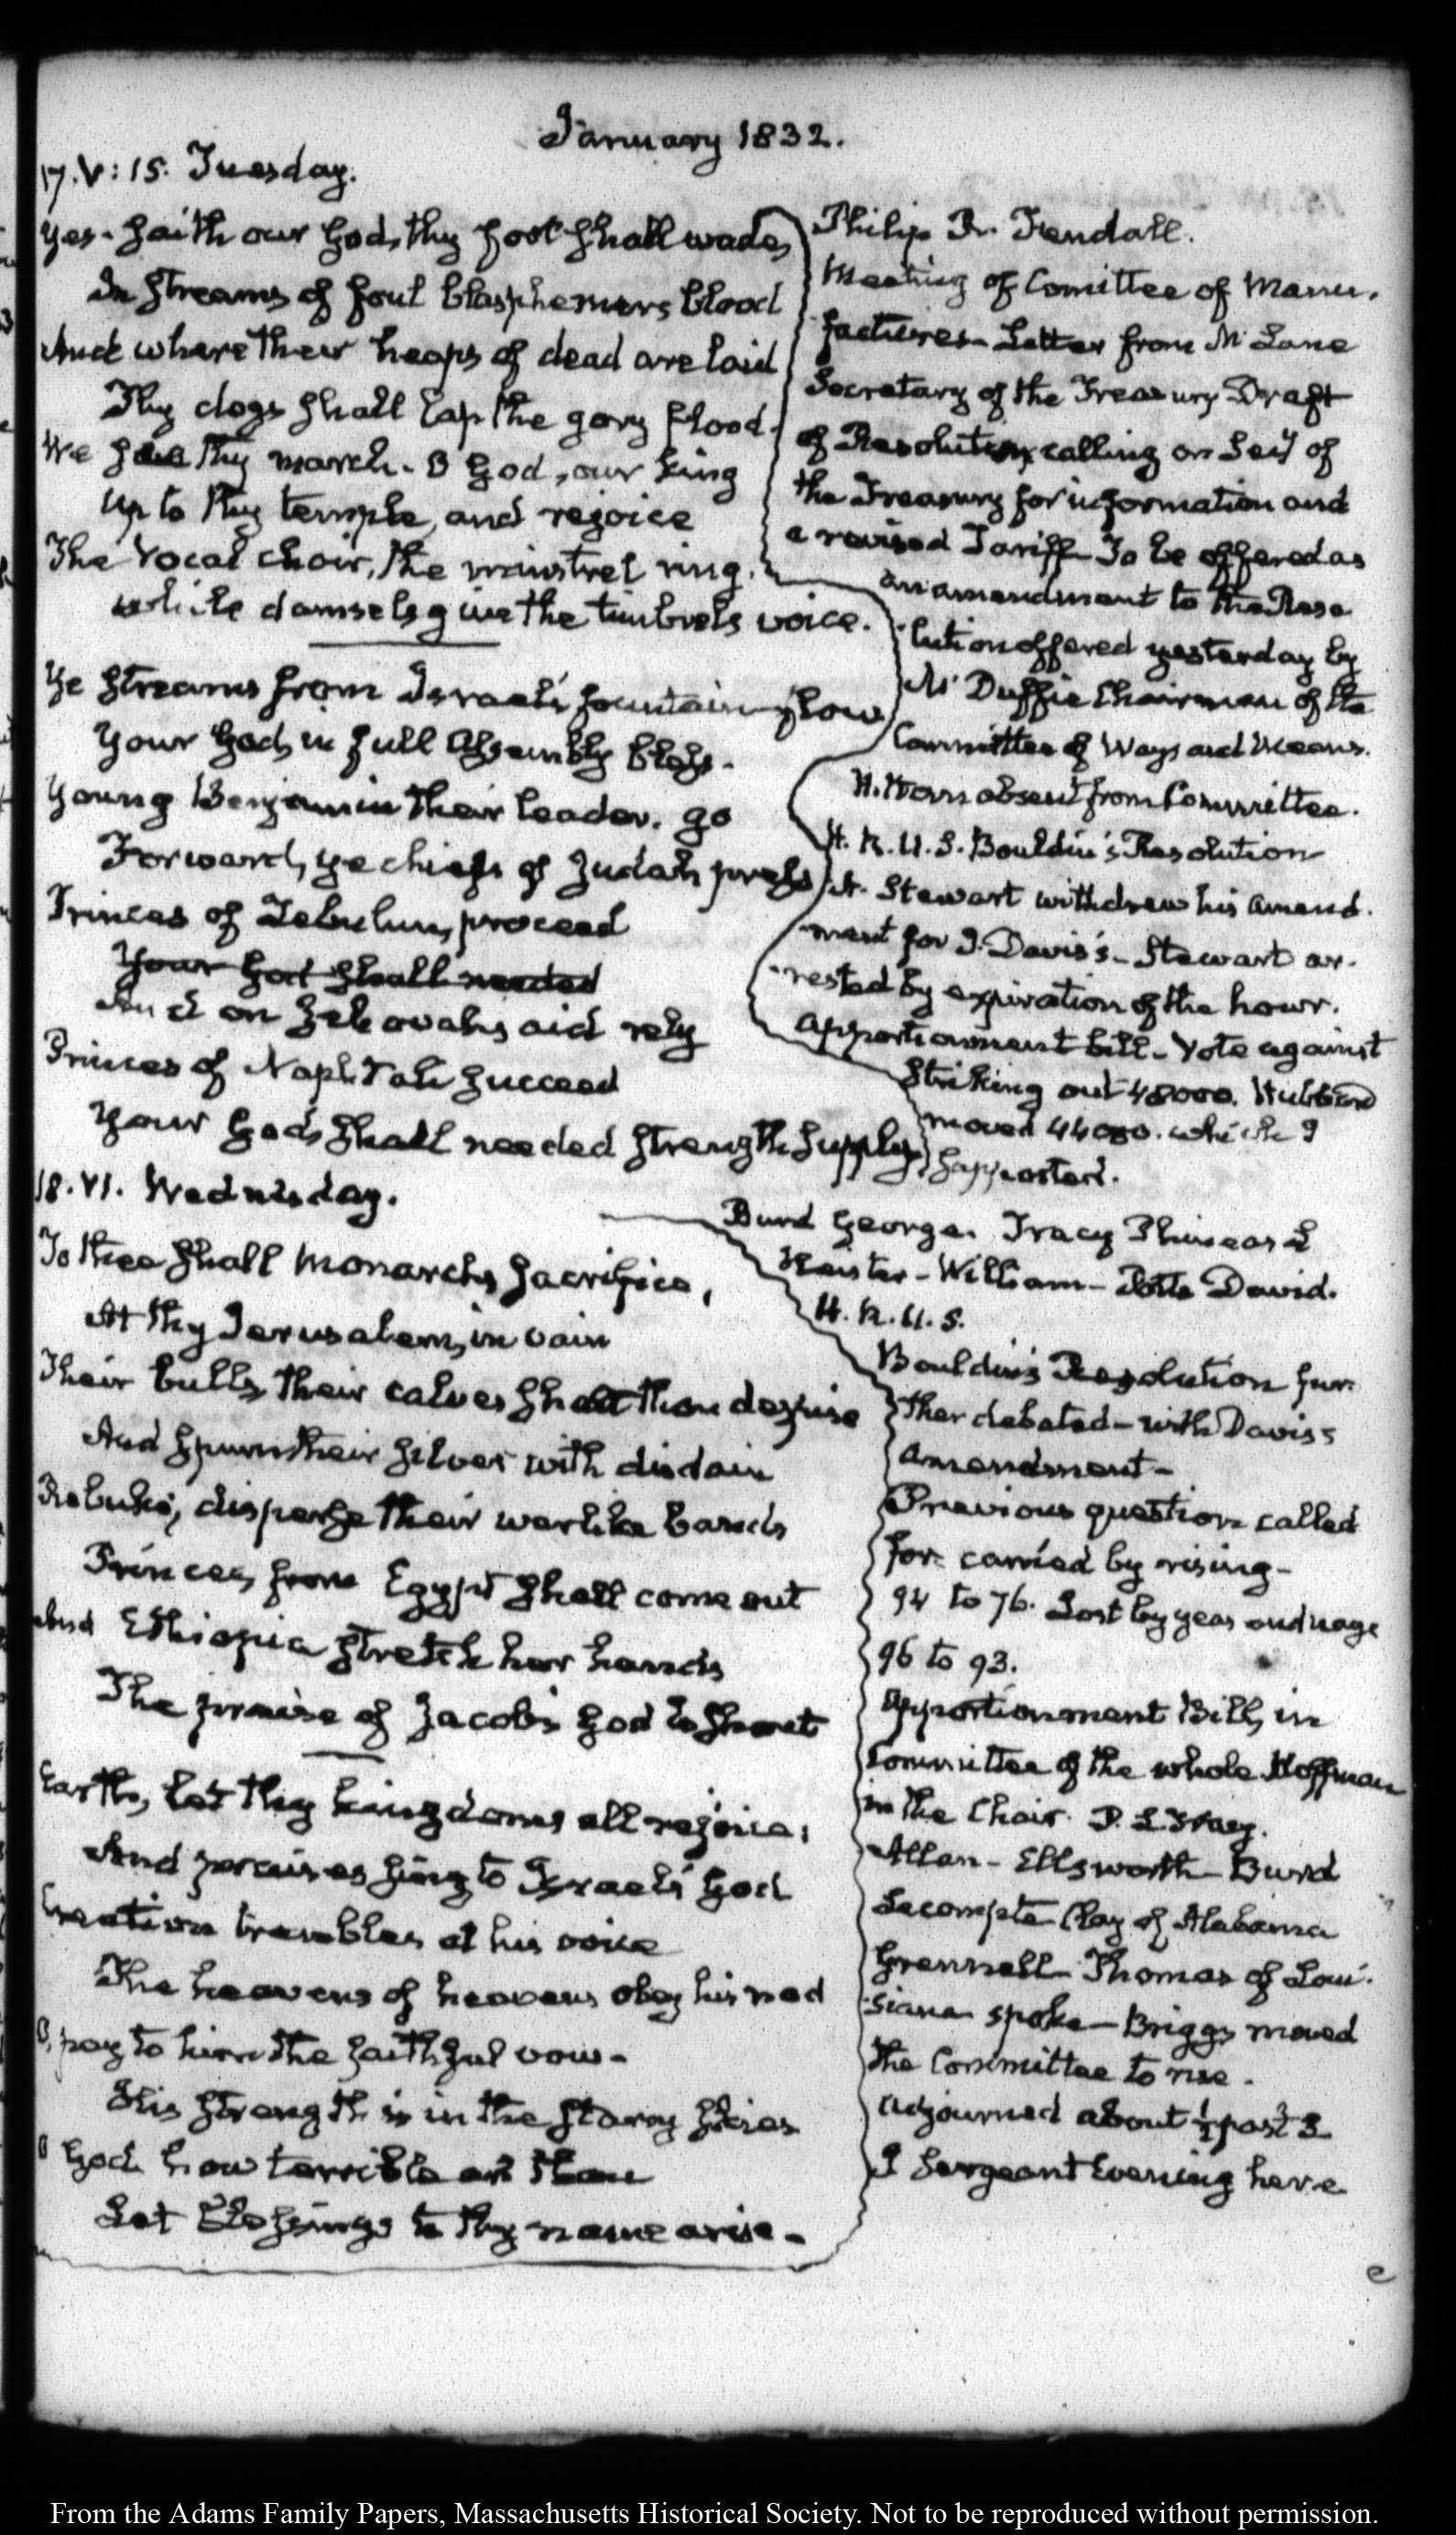 January 1832.
17. V: 15. Tuesday.
Yes. saith our God, thy foot shall wade,
In streams of foul blasphemers blood
And where their heaps of dead are laid
Thy dogs shall lap the gory flood.
We see thy march. O God, our king
Up to thy temple, and rejoice
The vocal choir, the minstrel ring.
while damsels give the timbrels voice.
Ye streams from Israel's fountain flow
Your God, in full assembly bless.
Young Benjamin their leader. go
Forward, ye chiefs of Judah press
Princes of Zebulun, proceed
Your God shall needed
And on Jehovahs aid rely
Princes of Naphtali succeed
Your Gods shall needed strength supply
Philip R. Fendall.
Meeting of Comittee of Manu-
factures. Letter from McLane
Secretary of the Treasury Draft
of Resolution, calling on Secy of
the Treasury for information and
a revised Tariff To be offered as
an amendment to the Reso
lution offered yesterday by
McDuffie Chairman of the
Committee of Ways and Means.
H. Horn absent from Committee.
H. R. U. S. Bouldin's Resolution
A. Stewart withdrew his amend-
ment for J. Davis's. Stewart ar-
rested by expiration of the hour.
Apportionment bill. Vote against
striking out 48000. Hubbard
moved 44000. which I
supported.
18. VI. Wednesday.
To thee shall Monarchs sacrifice,
At thy Jerusalem, in vain
Their bulls, their calves shalt thou despise
And spurn their silver with disdain
Rebuke, disperse their warlike bands
Princes, from Egypt shall come out
And Ethiopia stretch her hands
The praise of Jacob's God to shout
Earth, let thy kingdoms all rejoice,
And praises sing to Israel's God
Creation trembles at his voice
The heavens of heavens obey his nod
O, pay to him the faithful vow.
His strength is in the starry skies
O God how terrible art thou
Let blessings to thy name arise.
Burd George. Tracy Phineas L
Heister. William. Potts David.
H. R. U. S.
Bouldin's Resolution fur-
ther debated. with Davis's
amendment.
Previous question called
for. carried by rising.
94 to 76. Lost by yeas and nays
96 to 93.
Apportionment Bill, in
Committee of the whole Hoffman
in the Chair. P. L. Tracy.
Allan. Ellsworth. Burd
Lecompte. Clay of Alabama
Grennell. Thomas of Loui-
siana spoke. Briggs moved
the Committee to rise.
adjourned about ½ past 3
J Sergeant Evening here
e
From the Adams Family Papers, Massachusetts Historical Society. Not to be reproduced without permission.